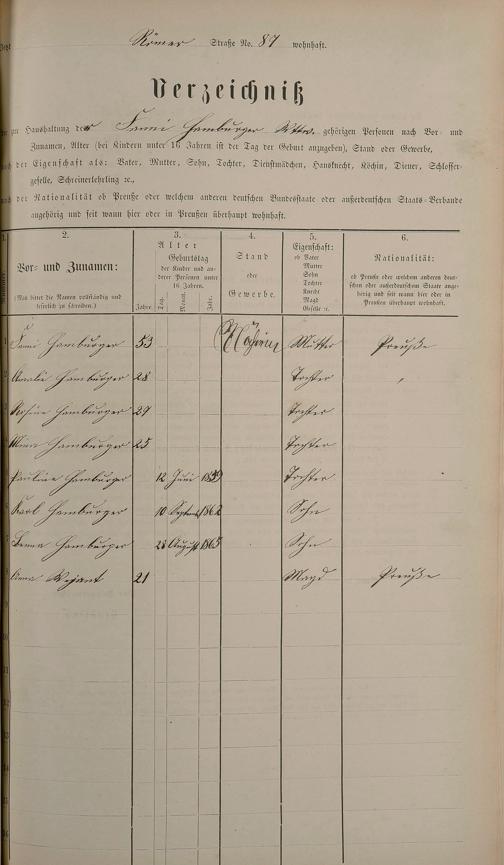 Römer Straße No. 87 wohnhaft.
Verzeichniß
zur Haushaltung der Fanni Hamburger Wttw. gehörigen Personen nach Vor- und
Zunamen, Alter (bei Kindern unter 16 Jahren ist der Tag der Geburt anzugeben), Stand oder Gewerbe,
nach der Eigenschaft als: Vater, Mutter, Sohn, Tochter, Dienstmädchen, Hausknecht, Köchin, Diener, Schlosser-
geselle, Schreinerlehrling ꝛc.,
nach der Nationalität ob Preuße oder welchem anderen deutschen Bundesstaate oder außerdeutschen Staats-Verbande
angehörig und seit wann hier oder in Preußen überhaupt wohnhaft.
1. 2. 3. 4. 5. 6.
Vor- und Zunamen:
(Man bittet die Namen vollständig und
leserlich zu schreiben.)
Alter
Jahre
Geburtstag
der Kinder und an-
derer Personen unter
16 Jahren.
Tag. Monat. Jahr.
Stand
oder
Gewerbe.
Eigenschaft:
ob Vater
Mutter
Sohn
Tochter
Knecht
Magd
Geselle ꝛc.
Nationalität:
ob Preuße oder welchem anderen deut-
schen oder außerdeutschen Staate ange-
hörig und seit wann hier oder in
Preußen überhaupt wohnhaft.
Fanni Hamburger 53 Mutter Preuße
Amalie Hamburger 28 Tochter "
Rosine Hamburger 27 Tochter
Mina Hamburger 25 Tochter
Pauline Hamburger 12 Juni 1859 Tochter
Karl Hamburger 10 September 1862 Sohn
Benno Hamburger 28 August 1865 Sohn
Anna Wejant 21 Magd Preuße